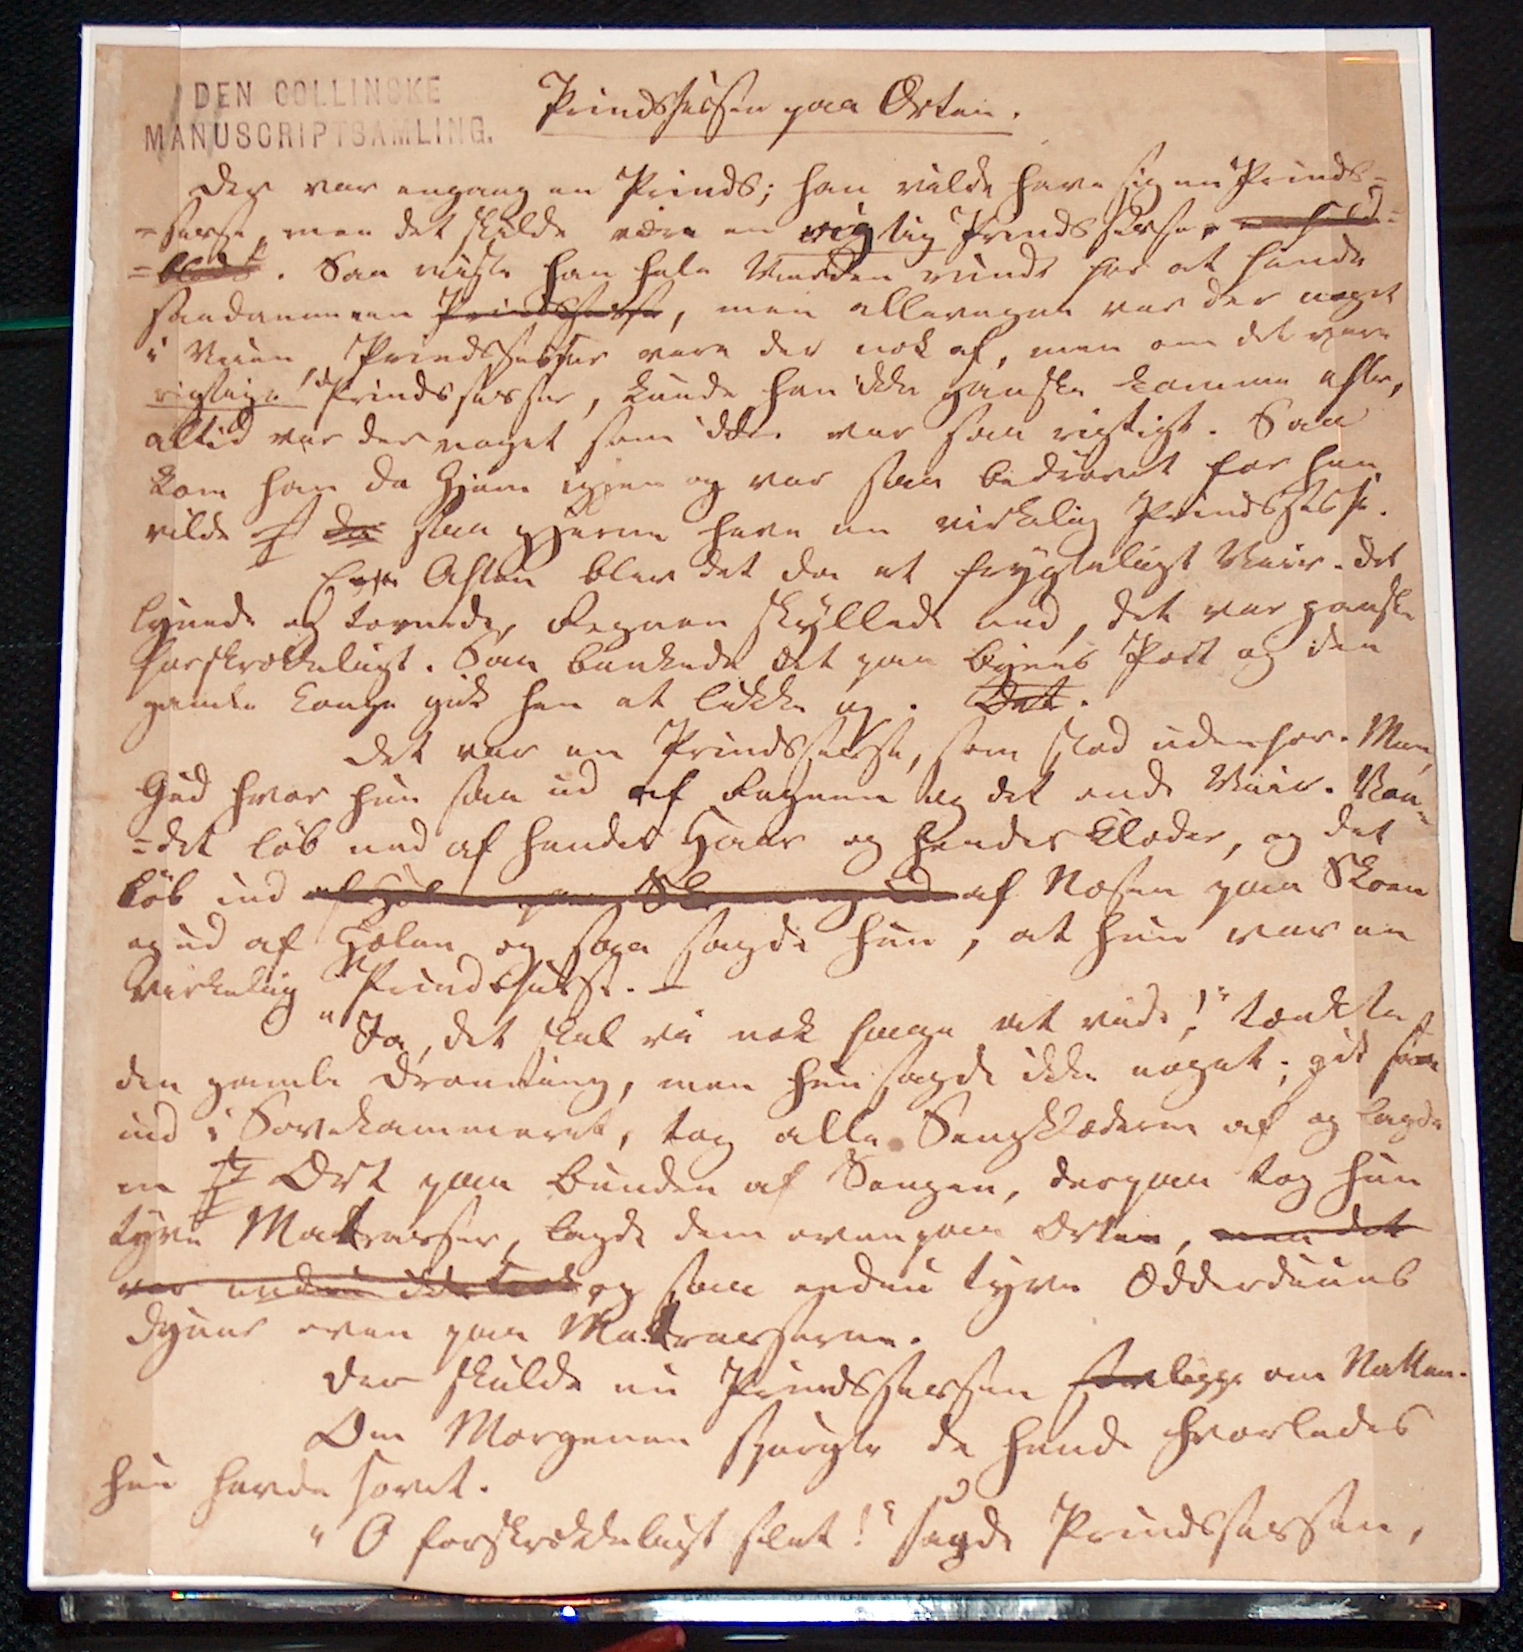 DEN COLLINSKE
MANUSCRIPTSAMLING.
Prindsessen paa Ærten.
Der var engang en Prinds; han vilde have sig en Prinds=
=sesse, men det skulde være en rigtig Prindsesse,
=blods. Saa reiste han hele Verden rundt for at finde
saadan en Prindsesse, men allevegne var der noget
i Veien, Prindsesser vare der nok af, men om det vare
rigtige Prindsesser, kunde han ikke ganske komme efter,
altid var der noget som ikke var saa rigtigt. Saa
kom han da hjem igjen og var saa bedrøvet for han
vilde da saa gjerne have en virkelig Prindsesse.
En Aften blev det da et frygteligt Veir. Det
lynede og tornede, Regnen skyllede ned, det var ganske
forskrækkeligt. Saa bankede det paa Byens Port og den
gamle Konge gik hen at lukke op. Det.
Det var en Prindsesse, som stod udenfor. Men,
Gud hvor hun saa ud af Regnen og det onde Veir. Van=
=det løb ned af hendes Haar og hendes Klæder, og det
løb ind af Næsen paa Skoen
og ud af Hælen og saa sagde hun, at hun var en
virkelig Prindsesse. —
"Ja, det skal vi nok faae at vide!" tænkte
den gamle Dronning, men hun sagde ikke noget; gik saa
ind i Sovekammeret, tog alle Sengklæderne af og lagde
en Ært paa Bunden af Sengen, derpaa tog hun
tyve Mattrasser, lagde dem ovenpaa Ærten, men det
var endnu ikke nok og saa endnu tyve Ædderduuns
Dyner oven paa Mattrasserne.
Der skulde nu Prindsessen ligge om Natten.
Om Morgenen spurgte de hende hvorledes
hun havde sovet.
"O forskrækkeligt slet!" sagde Prindsessen,